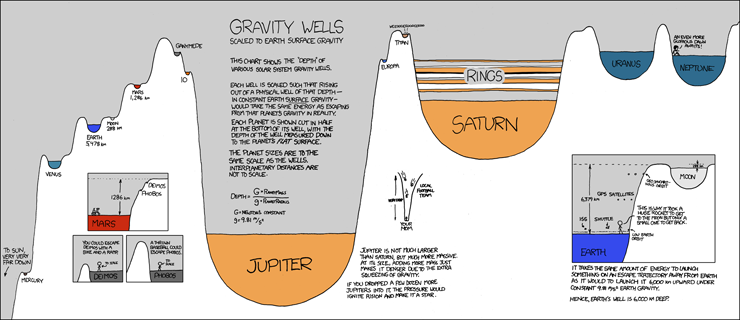 GRAVITY WELLS
SCALED TO EARTH SURFACE GRAVITY
THIS CHART SHOWS THE "DEPTH" OF
VARIOUS SOLAR SYSTEM GRAVITY WELLS.
EACH WELL IS SCALED SUCH THAT RISING
OUT OF A PHYSICAL WELL OF THAT DEPTH—
IN CONSTANT EARTH SURFACE GRAVITY—
WOULD TAKE THE SAME ENERGY AS ESCAPING
FROM THAT PLANET'S GRAVITY IN REALITY.
EACH PLANET IS SHOWN CUT IN HALF
AT THE BOTTOM OF ITS WELL, WITH THE
DEPTH OF THE WELL MEASURED DOWN
TO THE PLANET'S FLAT SURFACE.
THE PLANET SIZES ARE TO THE
SAME SCALE AS THE WELLS.
INTERPLANETARY DISTANCES ARE
NOT TO SCALE.
DEPTH = G × PLANETMASS
g × PLANETRADIUS
G = NEWTON'S CONSTANT
g = 9.81 m/s²
TO SUN,
VERY VERY
FAR DOWN
MERCURY
VENUS
EARTH
5,478 km
MOON
288 km
MARS
1,286 km
GANYMEDE
IO
JUPITER
EUROPA
TITAN
RINGS
SATURN
URANUS
NEPTUNE
AN EVEN MORE
GLORIOUS DAWN
AWAITS!
1286 km
DEIMOS
PHOBOS
MARS
YOU COULD ESCAPE
DEIMOS WITH A
BIKE AND A RAMP.
DEIMOS
A THROWN
BASEBALL COULD
ESCAPE PHOBOS.
PHOBOS
LOCAL
FOOTBALL
TEAM
YOUR
MOM
JUPITER IS NOT MUCH LARGER
THAN SATURN, BUT MUCH MORE MASSIVE.
AT ITS SIZE, ADDING MORE MASS JUST
MAKES IT DENSER DUE TO THE EXTRA
SQUEEZING OF GRAVITY.
IF YOU DROPPED A FEW DOZEN MORE
JUPITERS INTO IT, THE PRESSURE WOULD
IGNITE FUSION AND MAKE IT A STAR.
MOON
GPS SATELLITES
6,379 km
ISS
SHUTTLE
LOW EARTH
ORBIT
THIS IS WHY IT TOOK A
HUGE ROCKET TO GET
TO THE MOON BUT ONLY A
SMALL ONE TO GET BACK.
EARTH
IT TAKES THE SAME AMOUNT OF ENERGY TO LAUNCH
SOMETHING ON AN ESCAPE TRAJECTORY AWAY FROM EARTH
AS IT WOULD TO LAUNCH IT 6,000 km UPWARD UNDER
CONSTANT 9.81 m/s² EARTH GRAVITY.
HENCE, EARTH'S WELL IS 6,000 km DEEP.